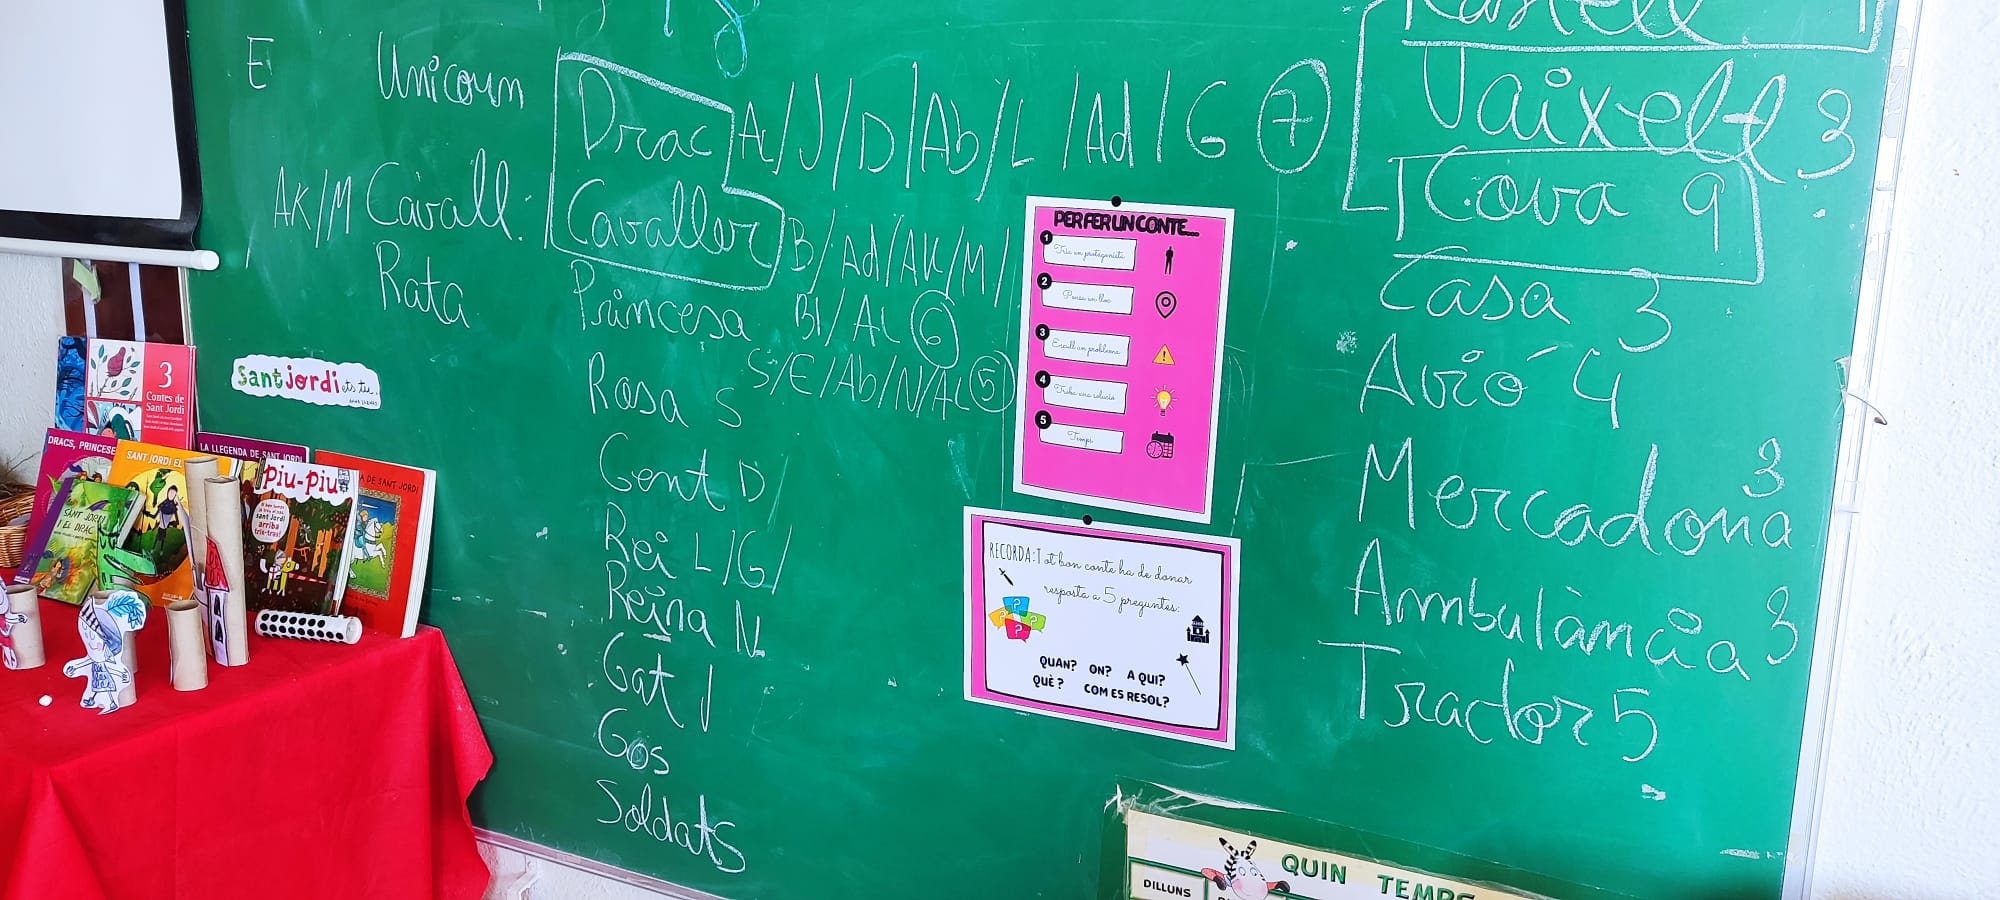 E Unicorn
AK/M Cavall.
Rata
Drac AL/J/D/Ab/L/Ad/G 7
Cavaller B/Ad/AK/M/
Princesa Bl/AL 6
Rosa S S/E/Ab/N/AL 5
Gent D/
Rei L/G/
Reina N
Gat J
Gos
Soldats
Kastell
Vaixell 3
Cova 9
Casa 3
Avió 4
Mercadona 3
Ambulància 3
Tractor 5
PER FER UN CONTE...
1 Tria un protagonista
2 Pensa un lloc
3 Escull un problema
4 Troba una solució
5 Temps
RECORDA: Tot bon conte ha de donar
resposta a 5 preguntes:
QUAN? ON? A QUI?
QUÈ? COM ES RESOL?
Sant jordi ets tu.
3
Contes de
Sant Jordi
DRACS, PRINCESE
SANT JORDI EL
LA LLEGENDA DE SANT JORDI
Piu-piu
sant Jordi
arriba
tris-tras!
A DE SANT JORDI
SANT JORDI
I EL DRAC
QUIN TEMPS
DILLUNS